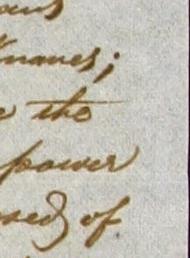 ous
Knaves;
e the
power
sed of